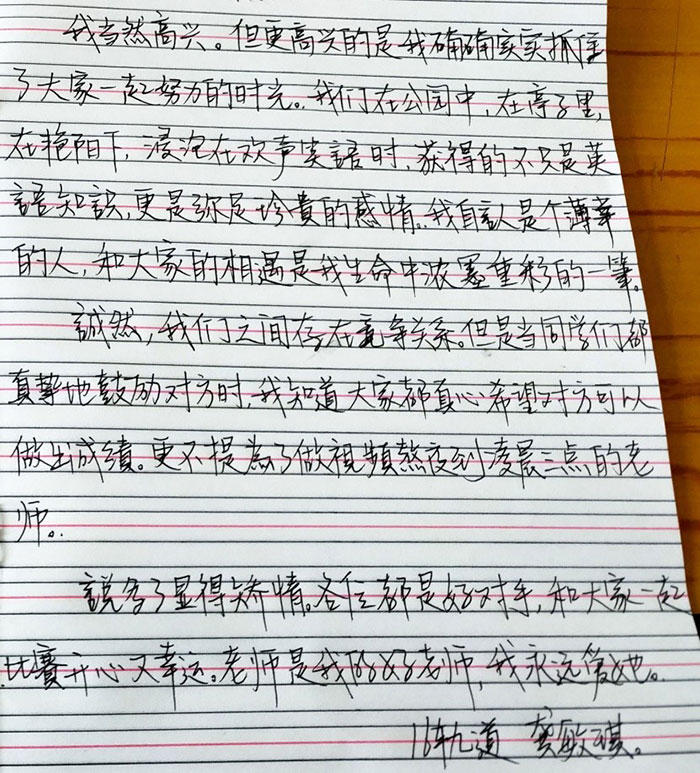 我当然高兴。但更高兴的是我确确实实抓住
了大家一起努力的时光。我们在公园中，在亭子里，
在艳阳下，浸泡在欢声笑語时，获得的不只是英
語知識，更是弥足珍貴的感情。我自認是个薄幸
的人，和大家的相遇是我生命中浓墨重彩的一筆。
誠然，我们之间存在竞争关系。但是当同学们都
真挚地鼓励对方时，我知道大家都真心希望对方可以
做出成績。更不提為了做視頻熬夜到凌晨三点的老
师。
説多了显得矫情。各位都是好对手，和大家一起
比賽开心又幸运。老师是我的好老师，我永远爱她。
16轨道 龚敏琪。